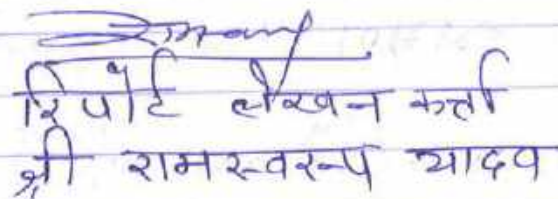 रिपोर्ट लेखन कर्ता
श्री रामस्वरूप यादव